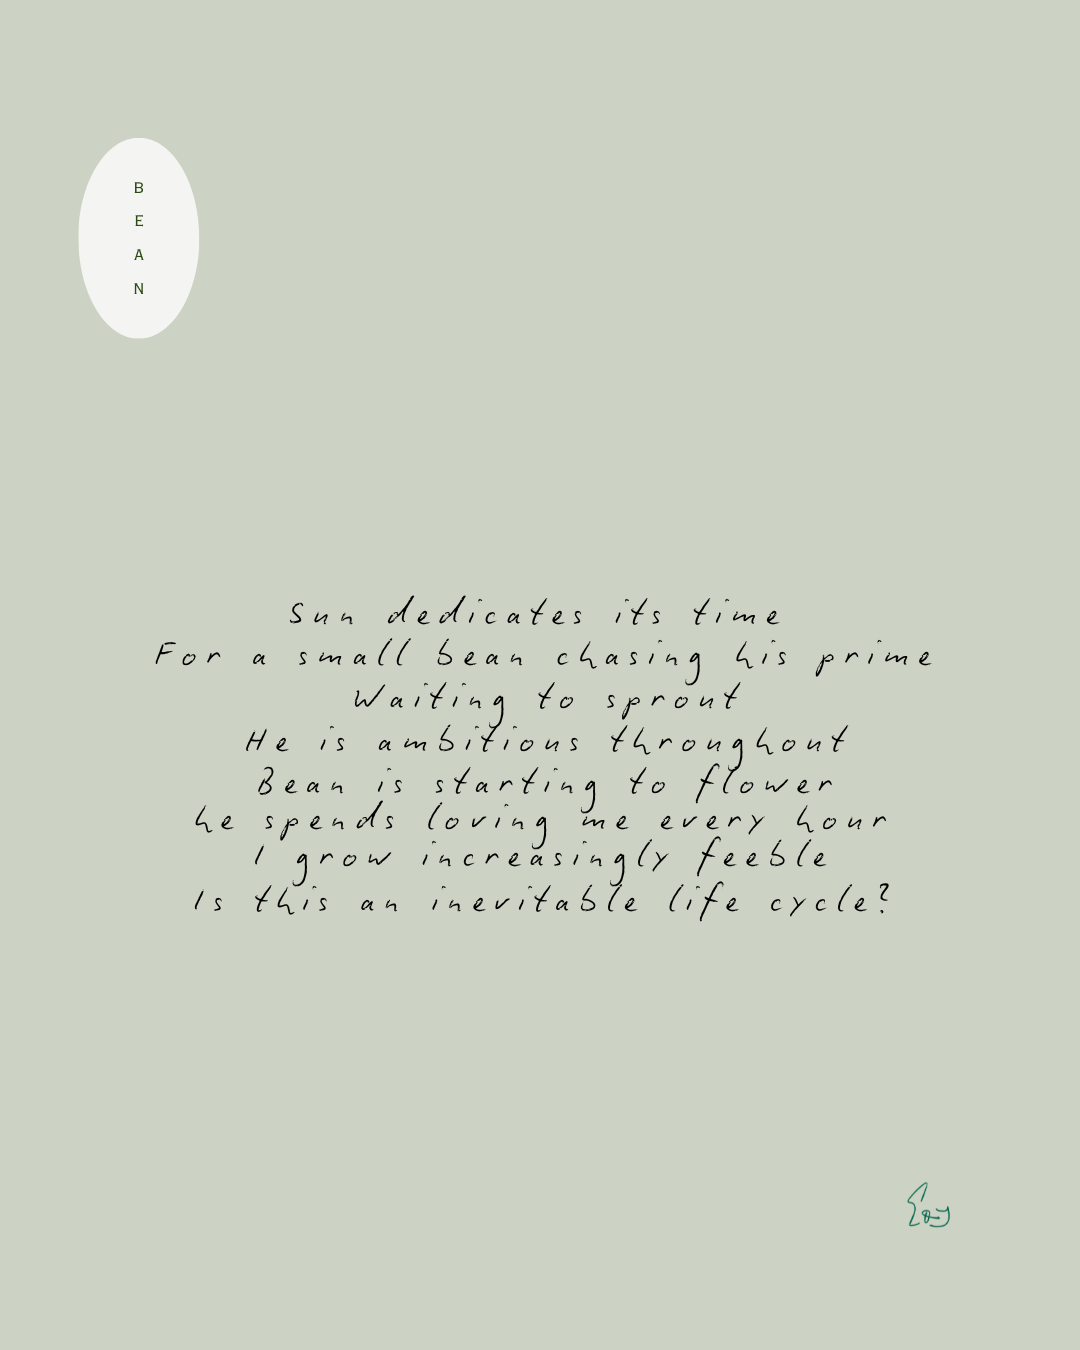 B
E
A
N
Sun dedicates its time
For a small bean chasing his prime
Waiting to sprout
He is ambitious throughout
Bean is starting to flower
he spends loving me every hour
I grow increasingly feeble
Is this an inevitable life cycle?